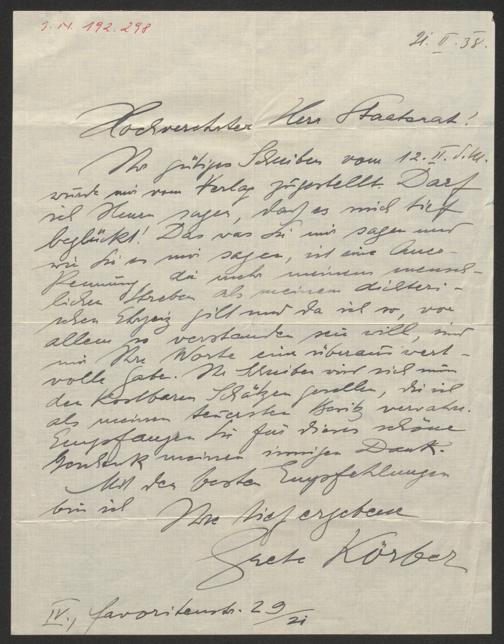 J.N. 192.298
21. II. 38.
Hochverehrter Herr Staatsrat!
Ihr gütiges Schreiben vom 12. II. d. M.
wurde mir vom Verlag zugestellt. Darf
ich Ihnen sagen, daß es mich tief
beglückt! Das was Sie mir sagen und
wie Sie es mir sagen, ist eine Aner-
kennung die mehr meinem mensch-
lichen Streben als meinem dichteri-
schen Ehrgeiz gilt und da ich so, vor
allem so verstanden sein will, sind
mir Ihre Worte eine überaus wert-
volle Gabe. Ihr Schreiben wird sich nun
den kostbaren Schätzen gesellen, die ich
als meinen teuersten Besitz verwahre.
Empfangen Sie für dieses schöne
Geschenk meinen innigen Dank.
Mit den besten Empfehlungen
bin ich Ihre tief ergebene
Grete Körber
IV., Favoritenstr. 29/21